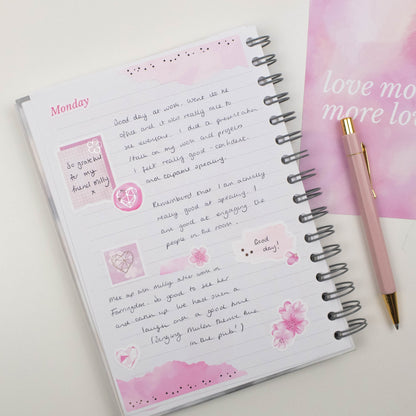 Monday
Good day at work. Went to the
office and it was really nice to
see everyone. I did a presentation
/talk on my work and projects
I felt really good - confident
and capable speaking.
So grateful
for my
friend Milly
x
Remembered that I am actually
really good at speaking. I
am good at engaging the
people in the room.
Good
day!
Met up with Milly after work in
Farringdon. So good to see her
and catch up. We had such a
laugh and a good time
(Singing Mulan theme tune
in the pub!)
love mo
more lov